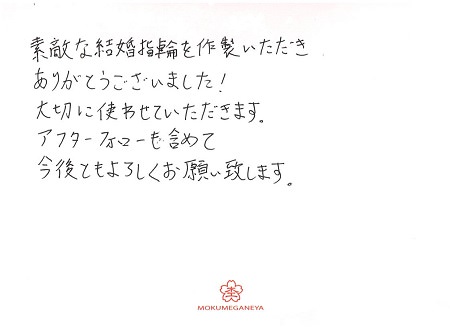 素敵な結婚指輪を作製いただき
ありがとうございました!
大切に使わせていただきます。
アフターフォローも含めて
今後ともよろしくお願い致します。
MOKUMEGANEYA